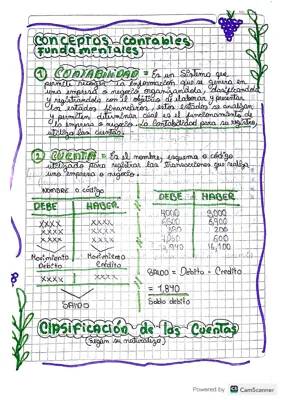 Conceptos contables
fundamentales
① CONTABILIDAD = Es un Sistema que
permite recoger la información que se genera en
una empresa o negocio organizandola, clasificandola
y registrandola con el objetivo de elaborar y presentar
los estados financieros, estos estados se analizan
y permiten determinar cual es el funcionamiento de
la empresa o negocio. La contabilidad para su registro,
utiliza las cuentas.
② CUENTA = Es el nombre, esquema o código
utilizado para registrar las transacciones que realiza
una empresa o negocio.
NOMBRE o código
DEBE HABER
XXXX XXXX
XXXX XXXX
XXXX XXXX
Movimiento Movimiento
Débito Crédito
SALDO
DEBE HABER
9,000
200
600
16,100
SALDO = Debito - Credito
= 1,840
Saldo debito
Clasificación de las Cuentas
(según su naturaleza)
Powered by CS CamScanner